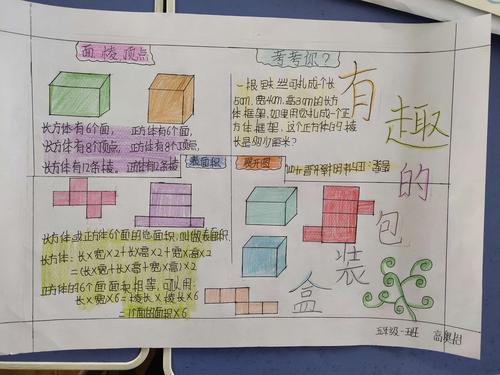 面 棱 顶点
长方体有6个面,
长方体有8个顶点,
长方体有12条棱,
正方体有6个面,
正方体有8个顶点,
正方体有12条棱
考考你?
一根铁丝可扎成一个长
5cm,宽4cm,高3cm的长方
体框架,如果用它扎成一个正
方体框架,这个正方体的棱
长是多少厘米?
表面积
展开图
长方体或正方体6个面的总面积,叫做表面积.
长方体:长×宽×2+长×高×2+宽×高×2
=(长×宽+长×高+宽×高)×2
正方体的6个面面积相等,可以用:
长×宽×6=棱长×棱长×6
=1个面的面积×6
有趣的包装盒
五年级一班